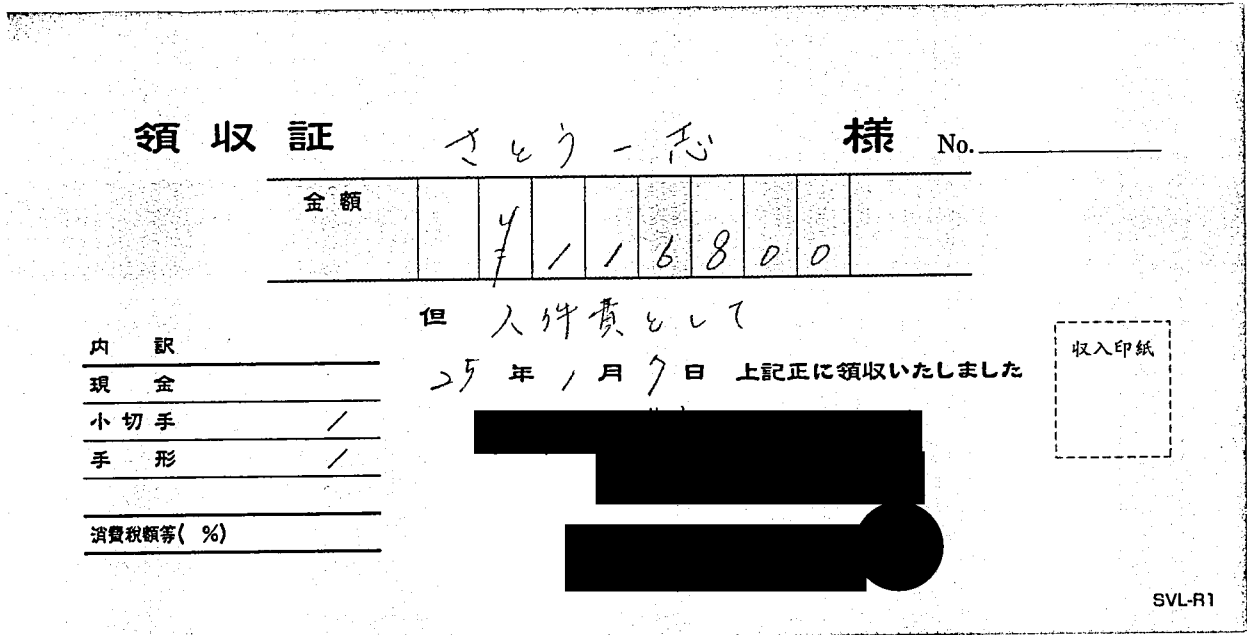 領収証 さとう一志 様 No.
金額 ¥116800
但 人件費として
25年1月7日 上記正に領収いたしました
収入印紙
内訳
現金
小切手 /
手形 /
消費税額等( %)
SVL-R1